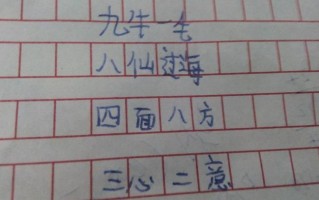 九牛一毛
八仙过海
四面八方
三心二意